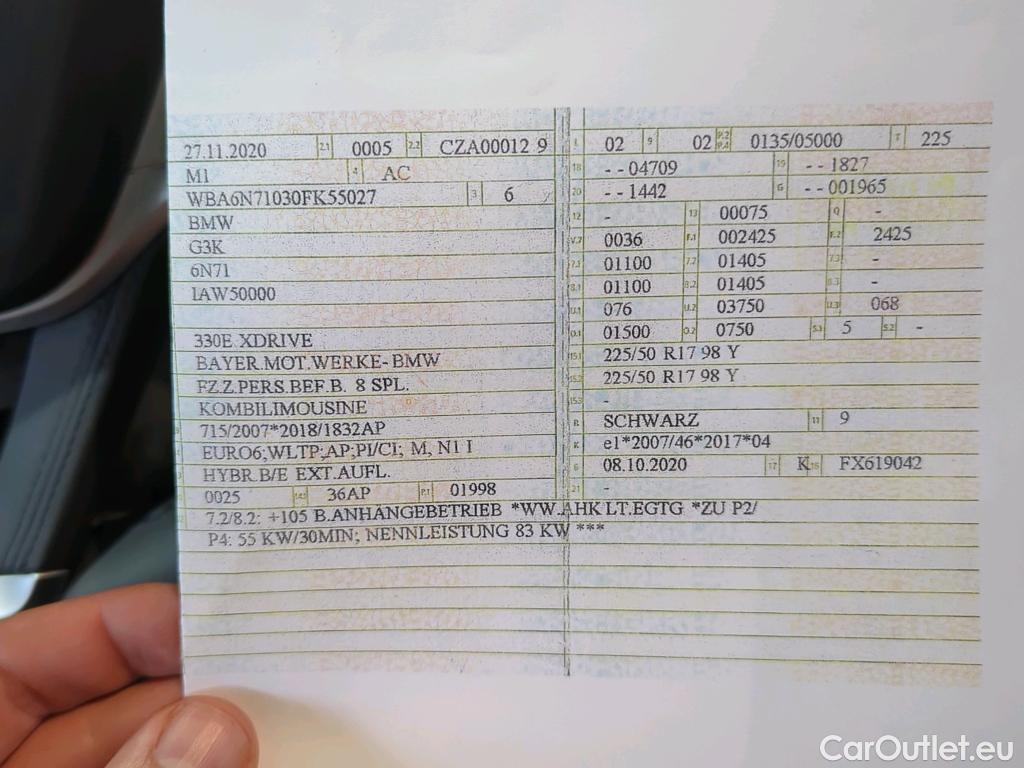 27.11.2020 2.1 0005 2.2 CZA00012 9
M1 4 AC
WBA6N71030FK55027 3 6
BMW
G3K
6N71
1AW50000
330E XDRIVE
BAYER.MOT.WERKE-BMW
FZ.Z.PERS.BEF.B. 8 SPL.
KOMBILIMOUSINE
715/2007*2018/1832AP
EURO6;WLTP;AP;PI/CI; M, N1 I
HYBR.B/E EXT.AUFL.
0025 14.1 36AP P.1 01998
7.2/8.2: +105 B.ANHÄNGEBETRIEB *WW.AHK LT.EGTG *ZU P2/
P4: 55 KW/30MIN; NENNLEISTUNG 83 KW ***
L 02 9 02 P.2 P.4 0135/05000 T 225
18 --04709 19 --1827
20 --1442 G --001965
12 - 13 00075 Q -
V.7 0036 F.1 002425 F.2 2425
7.1 01100 7.2 01405 7.3 -
8.1 01100 8.2 01405 8.3 -
U.1 076 U.2 03750 U.3 068
O.1 01500 O.2 0750 S.1 5 S.2 -
15.1 225/50 R17 98 Y
15.2 225/50 R17 98 Y
15.3 -
R SCHWARZ 11 9
K e1*2007/46*2017*04
6 08.10.2020 17 K 16 FX619042
21 -
CarOutlet.eu